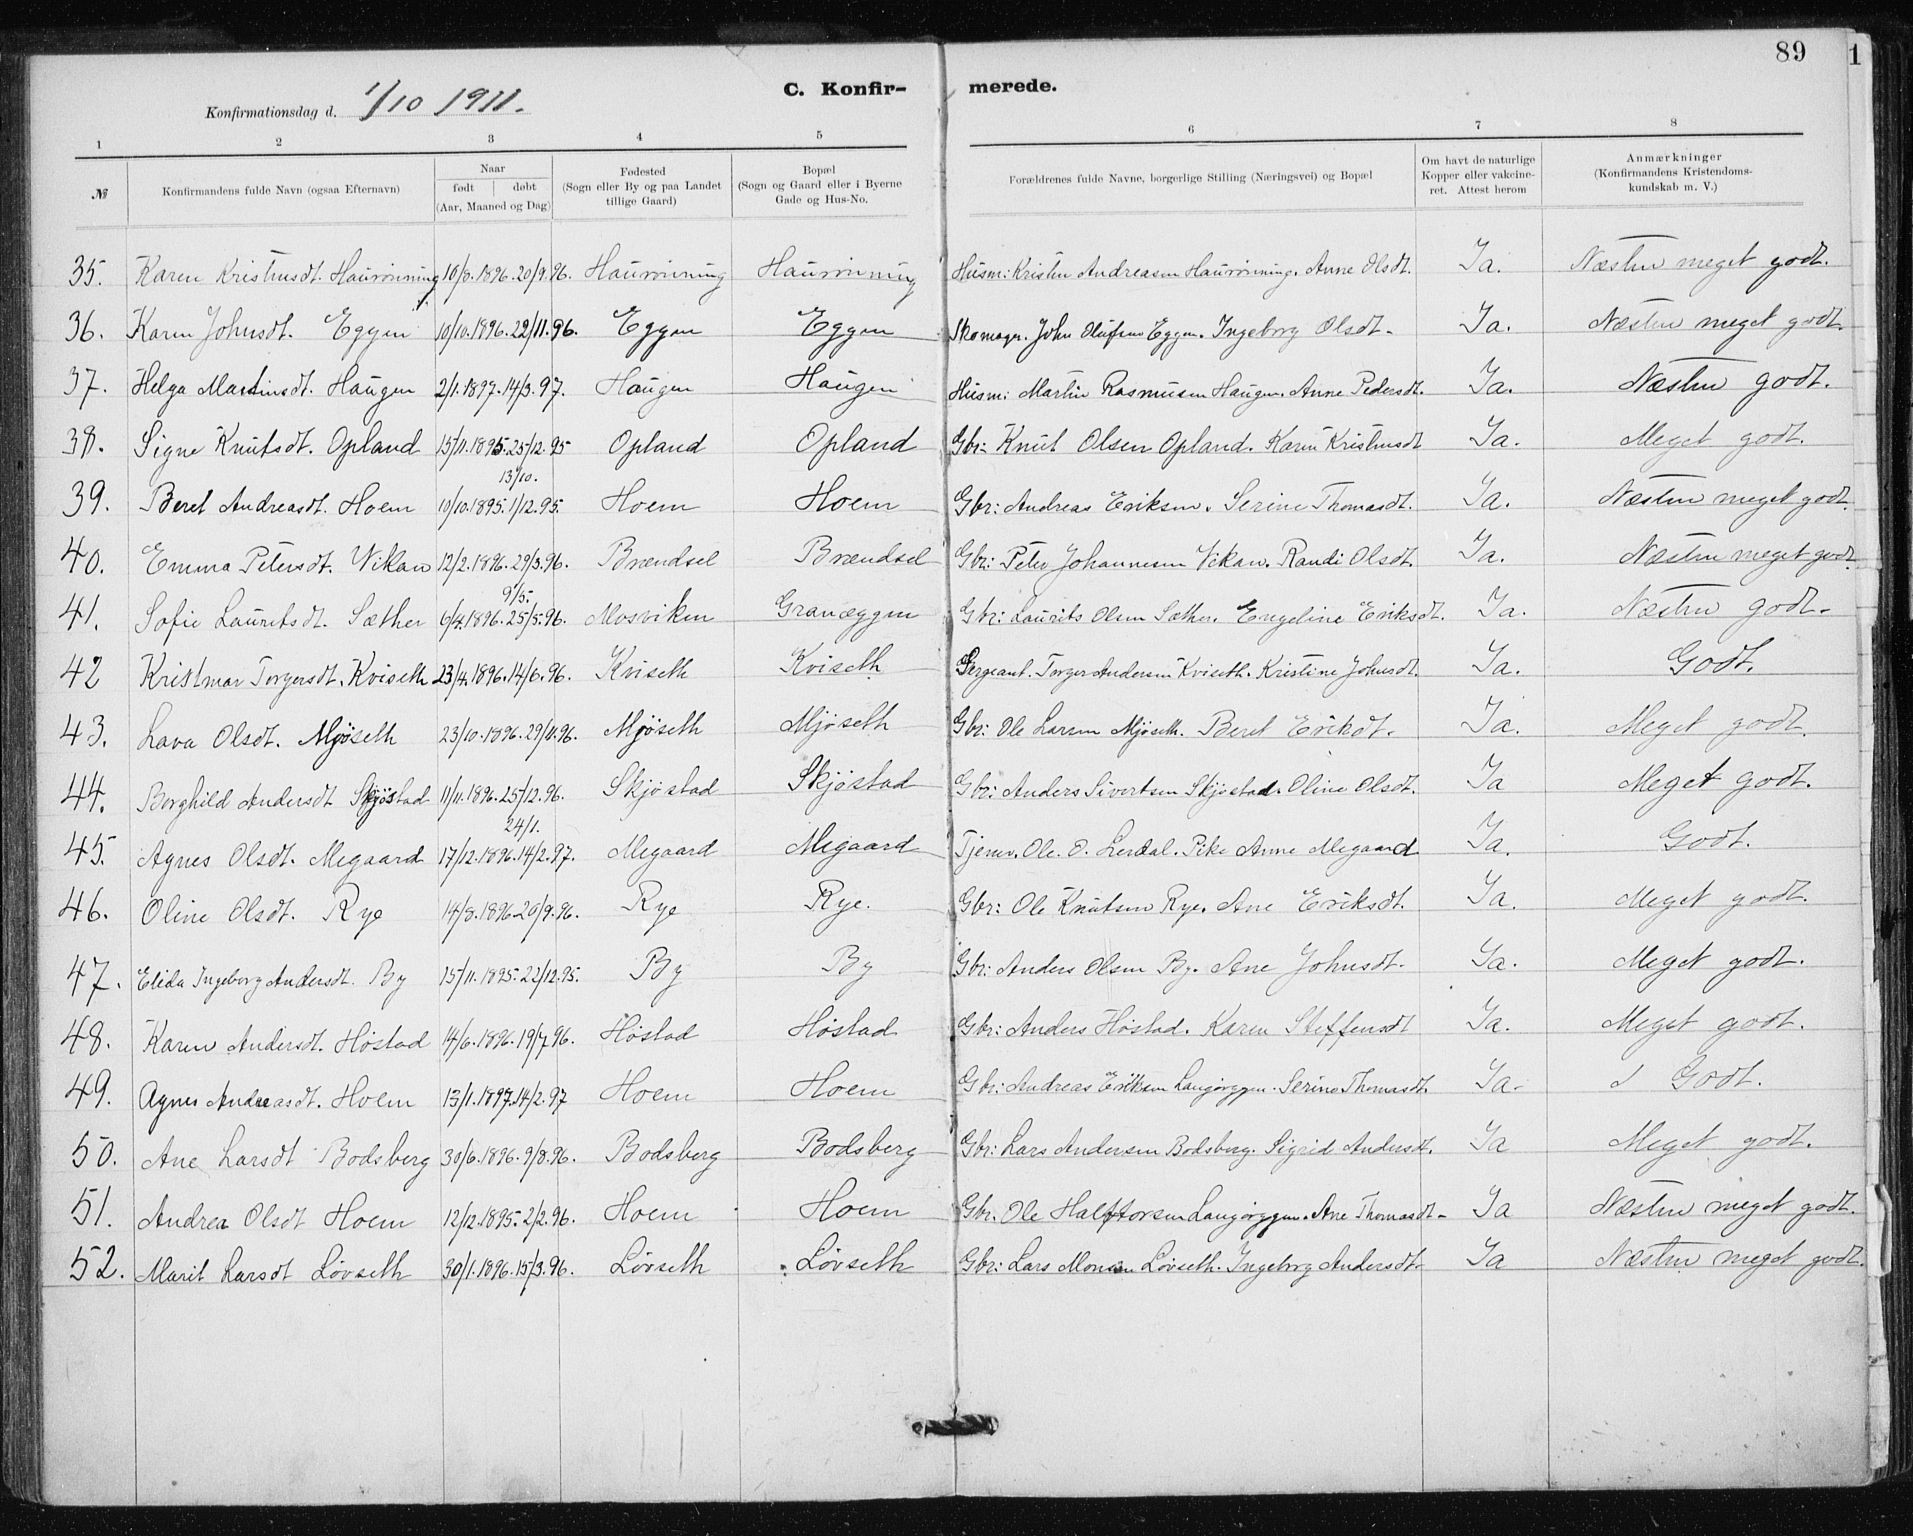 89
1
C. Konfir- merede.
Konfirmationsdag d. 1/10 1911.
1 2 3 4 5 6 7 8
№ | Konfirmandens fulde Navn (ogsaa Efternavn) | Naar født | døbt (Aar, Maaned og Dag) | Fødested (Sogn eller By og paa Landet tillige Gaard) | Bopæl (Sogn og Gaard eller i Byerne Gade og Hus-No. | Forældrenes fulde Navne, borgerlige Stilling (Næringsvei) og Bopæl | Om havt de naturlige Kopper eller vakcine- ret. Attest herom | Anmærkninger (Konfirmandens Kristendoms- kundskab m. V.)
35. Karen Kristensdt. Haurønning 10/8. 1896. 20/9. 96. Haurønning Haurønning Husm: Kristen Andreasen Haurønning. Anne Olsdt. Ja. Næsten meget godt.
36. Karen Johnsdt. Eggen 10/10. 1896. 22/11. 96. Eggen Eggen Skomager. John Olufsen Eggen. Ingeborg Olsdt. Ja. Næsten meget godt.
37. Helga Martinsdt. Haugen 2/1. 1897. 14/3. 97. Haugen Haugen Husm: Martin Rasmusen Haugen. Anne Pedersdt. Ja. Næsten godt.
38. Signe Knutsdt. Opland 15/11. 1895. 25/12. 95 Opland Opland Gbr. Knut Olsen Opland. Karen Kristensdt Ja. Meget godt.
13/10.
39. Beret Andreasdt. Hoem 10/10. 1895. 1/12. 95. Hoem Hoem Gbr: Andreas Eriksen. Serine Thomasdt. Ja. Næsten meget godt.
40. Emma Petersdt. Vikan 12/2. 1896. 29/3. 96. Brændsel Brændsel Gbr: Peter Johannesen Vikan. Randi Olsdt. Ja. Næsten meget godt.
9/5.
41. Sofie Lauritsdt. Sæther 6/4. 1896. 25/5. 96. Mosviken Granæggen Gbr: Laurits Olsen Sæther. Engeline Eriksdt. Ja. Næsten godt.
42 Kristmar Torgersdt. Kviseth 23/4. 1896. 14/6. 96. Kviseth Kviseth Sergeant. Torger Andersen Kviseth. Kristine Johnsdt. Ja. Godt.
43. Lava Olsdt. Mjøseth 23/10. 1896. 29/11. 96. Mjøseth Mjøseth Gbr: Ole Larsen Mjøseth. Beret Eriksdt. Ja. Meget godt.
44. Borghild Andersdt Skjøstad 11/11. 1896. 25/12. 96. Skjøstad Skjøstad Gbr: Anders Sivertsen Skjøstad. Oline Olsdt. Ja Meget godt.
24/1.
45. Agnes Olsdt. Megaard 17/12. 1896. 14/2. 97. Megaard Megaard Tjener. Ole. O. Lerdal. Pike Anne Megaard Ja. Godt.
46. Oline Olsdt. Rye 14/8. 1896. 20/9. 96. Rye Rye. Gbr: Ole Knutsen Rye. Ane Eriksdt. Ja. Meget godt.
47. Elida Ingeborg Andersdt. By 15/11. 1895. 22/12. 95. By By Gbr: Anders Olsen By. Ane Johnsdt. Ja. Meget godt.
48. Karen Andersdt. Høstad 14/6. 1896. 19/7. 96. Høstad Høstad Gbr: Anders Høstad. Karen Steffensdt Ja. Meget godt.
49. Agnes Andreasdt. Hoem 13/1. 1897. 14/2. 97 Hoem Hoem Gbr: Andreas Eriksen Langørggen. Serine Thomasdt. Ja. Godt.
50. Ane Larsdt Bodsberg 30/6. 1896. 9/8. 96. Bodsberg Bodsberg Gbr: Lars Andersen Bodsberg. Sigrid Andersdt. Ja Meget godt.
51. Andrea Olsdt Hoem 12/12. 1895. 2/2. 96. Hoem Hoem Gbr. Ole Halftorsen Langørggen. Ane Thomasdt. Ja Næsten meget godt.
52. Marit Larsdt Løvseth 30/1. 1896. 15/3. 96. Løvseth Løvseth Gbr: Lars Monsen Løvseth. Ingeborg Andersdt. Ja Næsten meget godt.